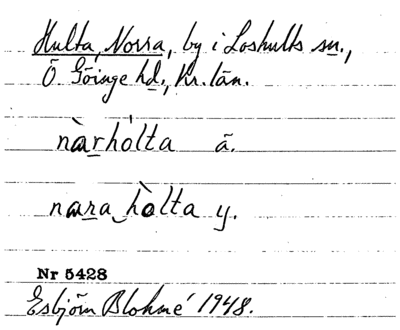 Hulta, Norra, by i Loshults sn.,
Ö. Göinge hd., Kr. län.
nàrhólta ä.
nara‿hòlta y.
Nr 5428
Esbjörn Blohmé 1948.